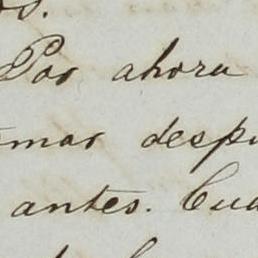 os.
Por ahora
mar despu
antes. Cua